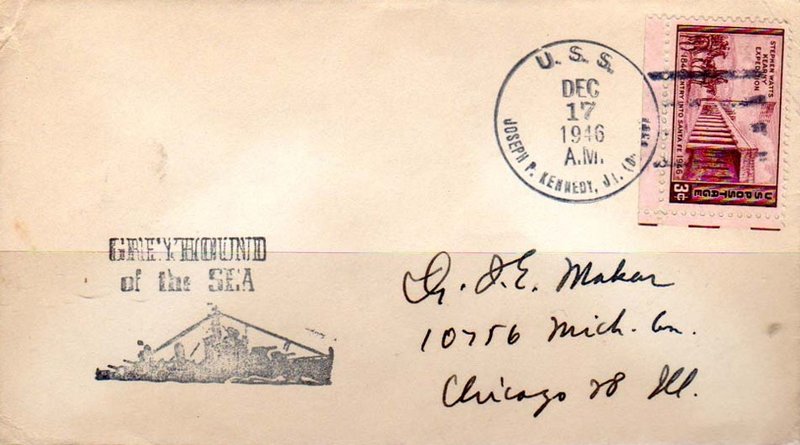 U. S. S.
DEC
17
1946
A.M.
JOSEPH P. KENNEDY, Jr. (D
STEPHEN WATTS
KEARNY
EXPEDITION
1846 ENTRY INTO SANTA FE 1946
U.S. POSTAGE
3¢
GREYHOUND
of the SEA
Dr. J. E. Makar
10756 Mich. Av.
Chicago 28 Ill.